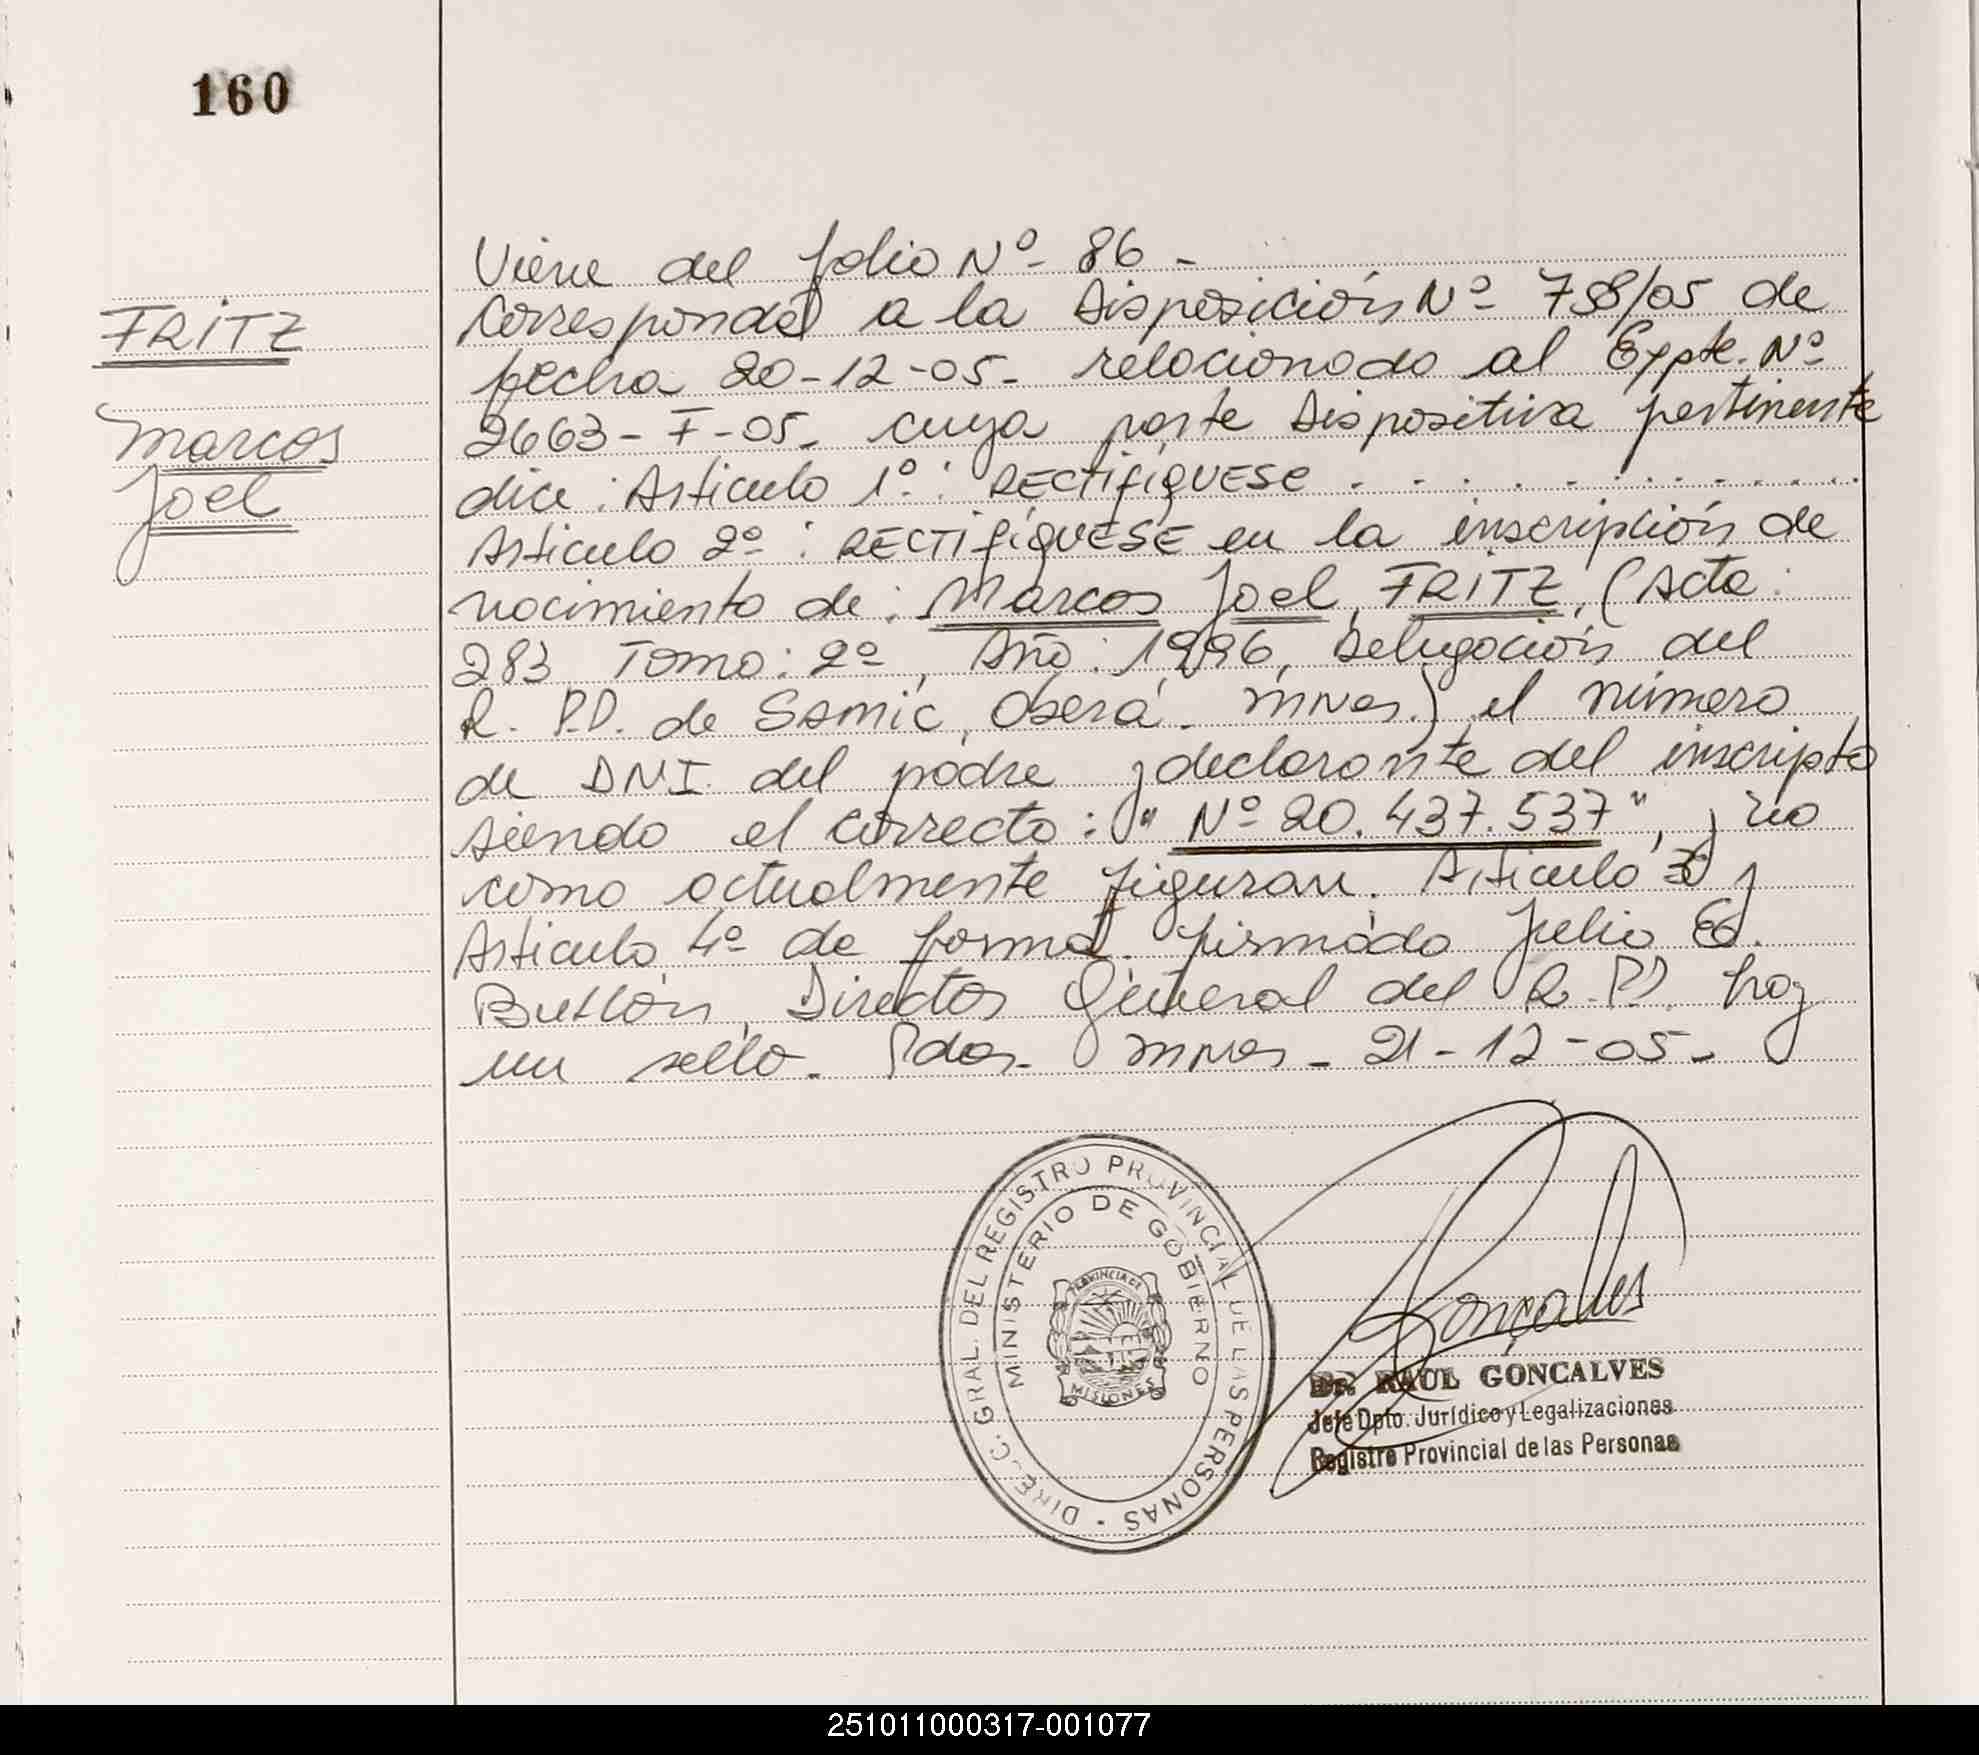 160
FRITZ
Marcos
Joel
Viene del folio Nº 86 -
Corresponde a la Disposición Nº 758/05 de
fecha 20-12-05- relacionado al Expte. Nº
2663-F-05- cuya parte Dispositiva pertinente
dice: Articulo 1º: RECTIFIQUESE . . . . . . . . . . . . . .
Articulo 2º: RECTIFIQUESE en la inscripción de
nacimiento de: Marcos Joel, FRITZ, (Acta:
283, Tomo: 2º, Año: 1996, Delegación del
R. P.P. de Samic, Oberá. Mnes.) el número
de DNI. del padre y declarante del inscripto
siendo el correcto: "Nº 20.437.537", y no
como actualmente figuran. Articulo 3º y
Articulo 4º de forma. firmado Julio Ed.
Directos General del R. P.P. hay
un sello. Pdas. Mnes - 21-12-05-
DIRECC. GRAL. DEL REGISTRO PROVINCIAL DE LAS PERSONAS -
MINISTERIO DE GOBIERNO
PROVINCIA DE
MISIONES
Gonçalves
Dr. RAUL GONCALVES
Jefe Dpto. Jurídico y Legalizaciones
Registro Provincial de las Personas
251011000317-001077